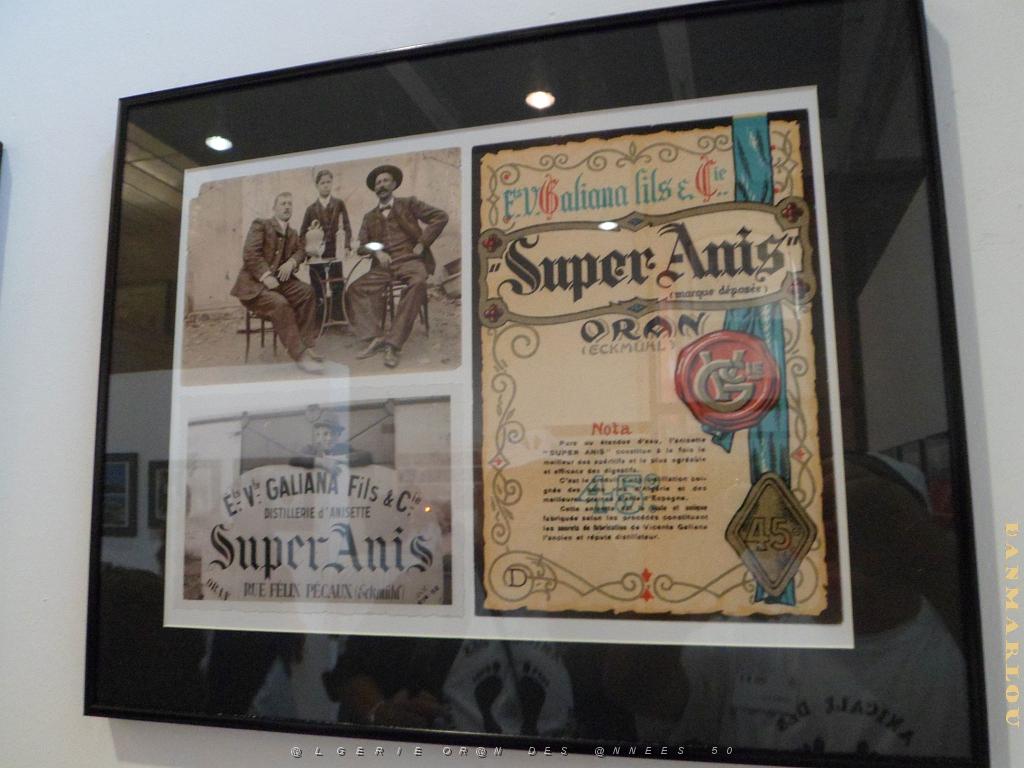 Ets V. Galiana fils & Cie
"Super Anis"
(marque déposée)
ORAN
(ECKMUHL)
Nota
Pure ou étendue d'eau, l'anisette
"SUPER ANIS" constitue à la fois le
meilleur des apéritifs et le plus agréable
et efficace des digestifs.
C'est le produit distillation soi-
gnée des d'Algérie et des
meilleures d'Espagne.
Cette la seule et unique
fabriquée selon les procédés constituant
les secrets de fabrication de Vicente Galiana
l'ancien et réputé distillateur.
45°
45°
D
Ets Vte GALIANA Fils & Cie
DISTILLERIE d'ANISETTE
Super Anis
ORAN
RUE FÉLIX PÉCAUX (Eckmühl)
@LGERIE OR@N DES @NNEES 50
DANMARLOU